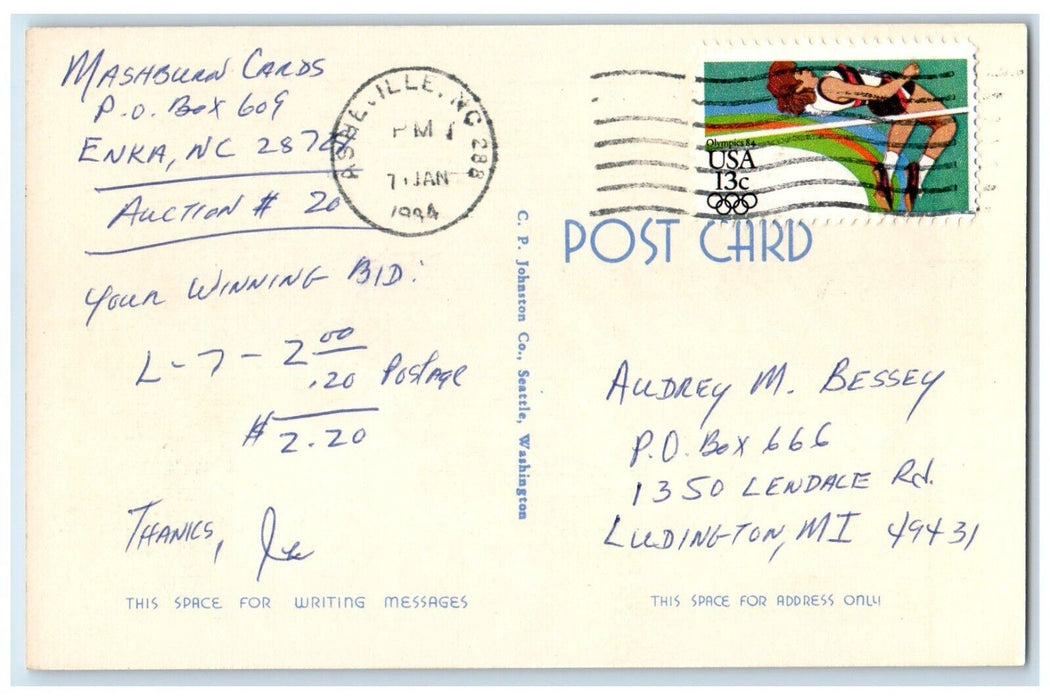 MASHBURN CARDS
P.O. BOX 609
ENKA, NC 28728
AUCTION # 20
YOUR WINNING BID:
L-7 - 2 00
.20 Postage
$ 2.20
THANKS, Joe
THIS SPACE FOR WRITING MESSAGES
ASHEVILLE, NC 288
PM
7 JAN
1984
C. P. Johnston Co., Seattle, Washington
Olympics 84
USA
13c
POST CARD
AUDREY M. BESSEY
P.O. BOX 666
1350 LENDALE Rd.
LUDINGTON, MI 49431
THIS SPACE FOR ADDRESS ONLY